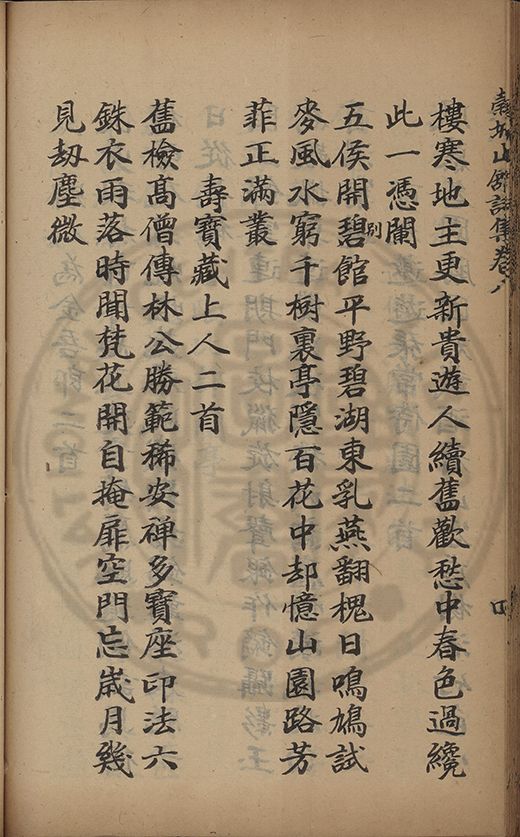 穀城山館詩集卷八
樓寒地主更新貴遊人續舊歡愁中春色過纔
此一憑闌
五侯開碧館平野碧湖東乳燕翻槐日鳴鳩試
別
麥風水窮千樹裏亭隱百花中却憶山園路芳
菲正滿叢
壽寶藏上人二首
舊檢高僧傳林公勝範稀安禅多寶座印法六
銖衣雨落時聞梵花開自掩扉空門忘嵗月幾
見劫塵微
四